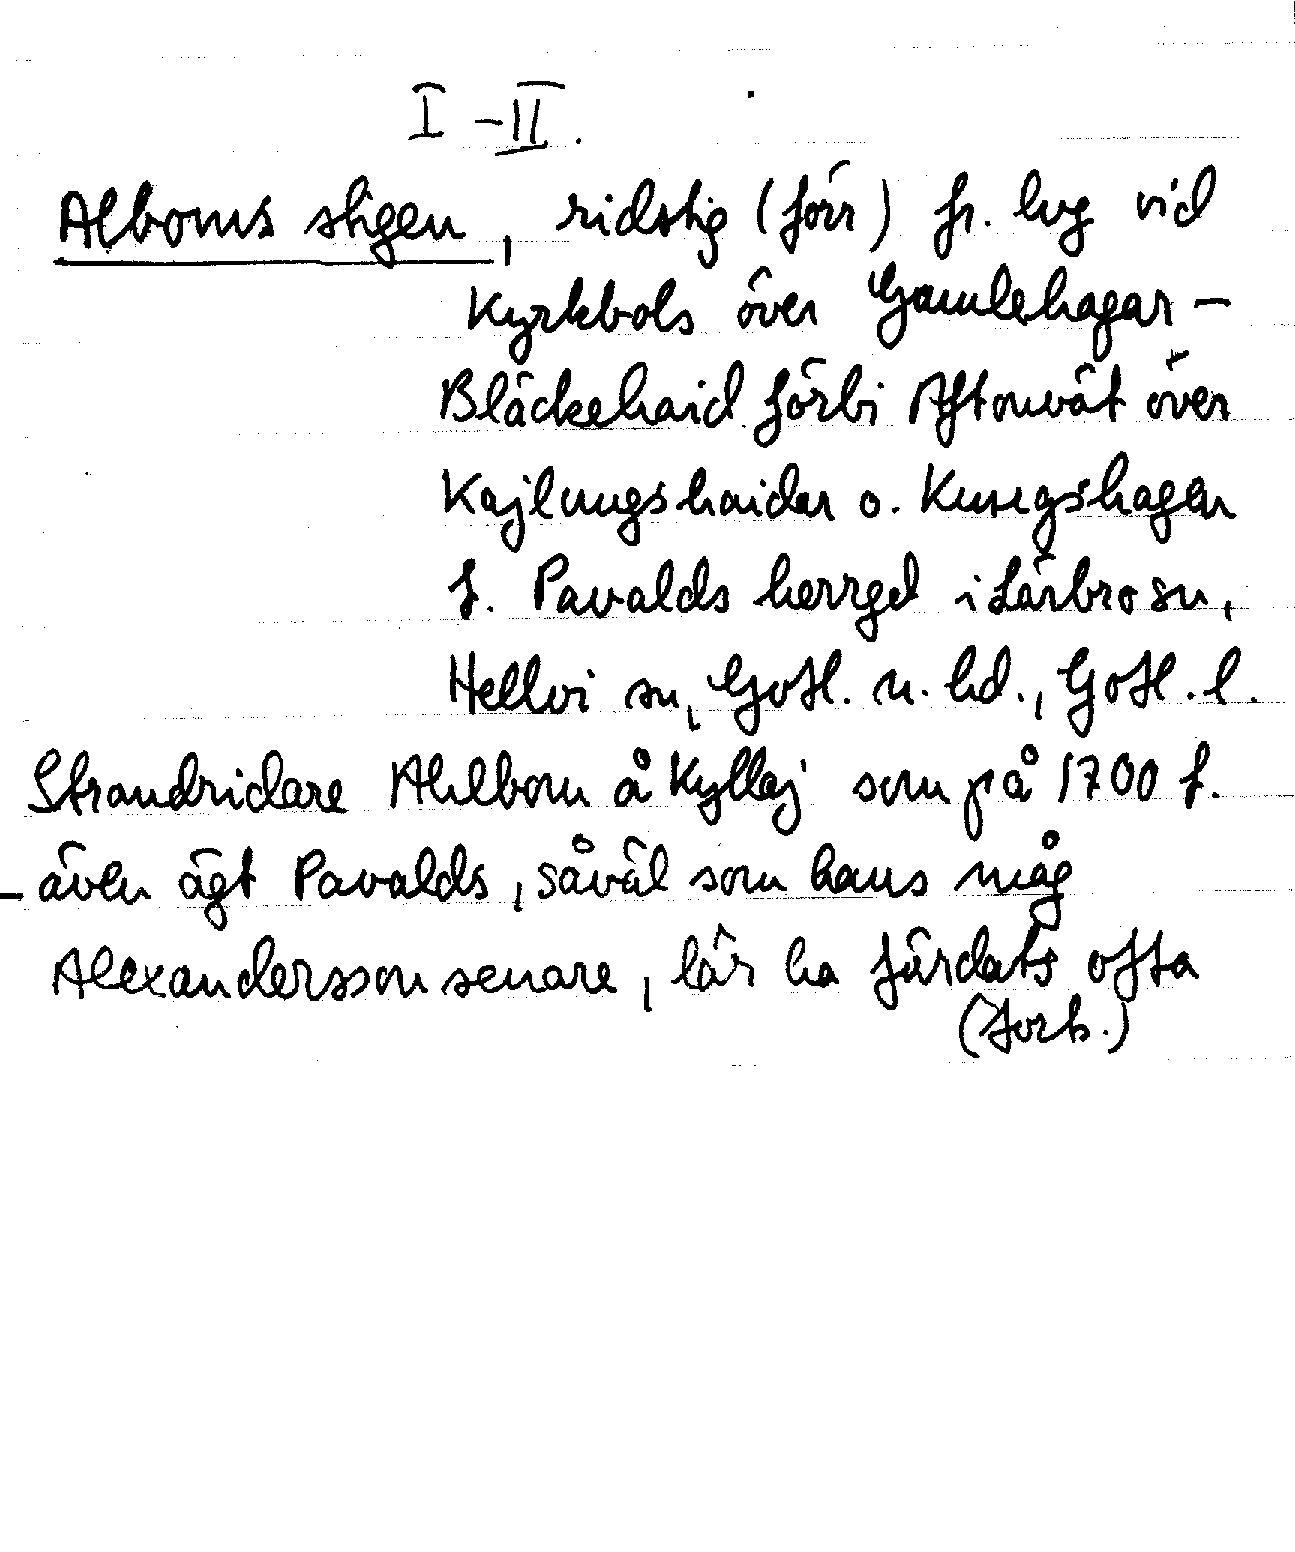 I - II.
Alboms stigen, ridstig (förr) fr. lvg vid
Kyrkbols över Gamlehagar -
Bläckehaid förbi Aftonvät över
Kajlungshaidar o. Kungshagen
t. Pavalds herrgd i Lärbro sn,
Hellvi sn, Gotl. n. hd., Gotl. l.
Strandridare Ahlbom å Kyllaj som på 1700 t.
även ägt Pavalds, såväl som hans måg
Alexandersson senare, lär ha färdats ofta
(forts.)